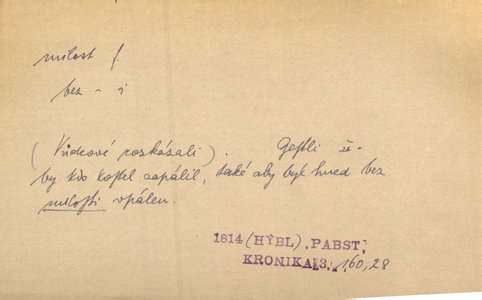 milost f.
bez - i
(Vůdcové rozkázali). Gestli že-
by kdo kostel zapálil, také aby byl hned bez
milosti upálen.
1814 (HÝBL) PABST:
KRONIKA 3, 160,28